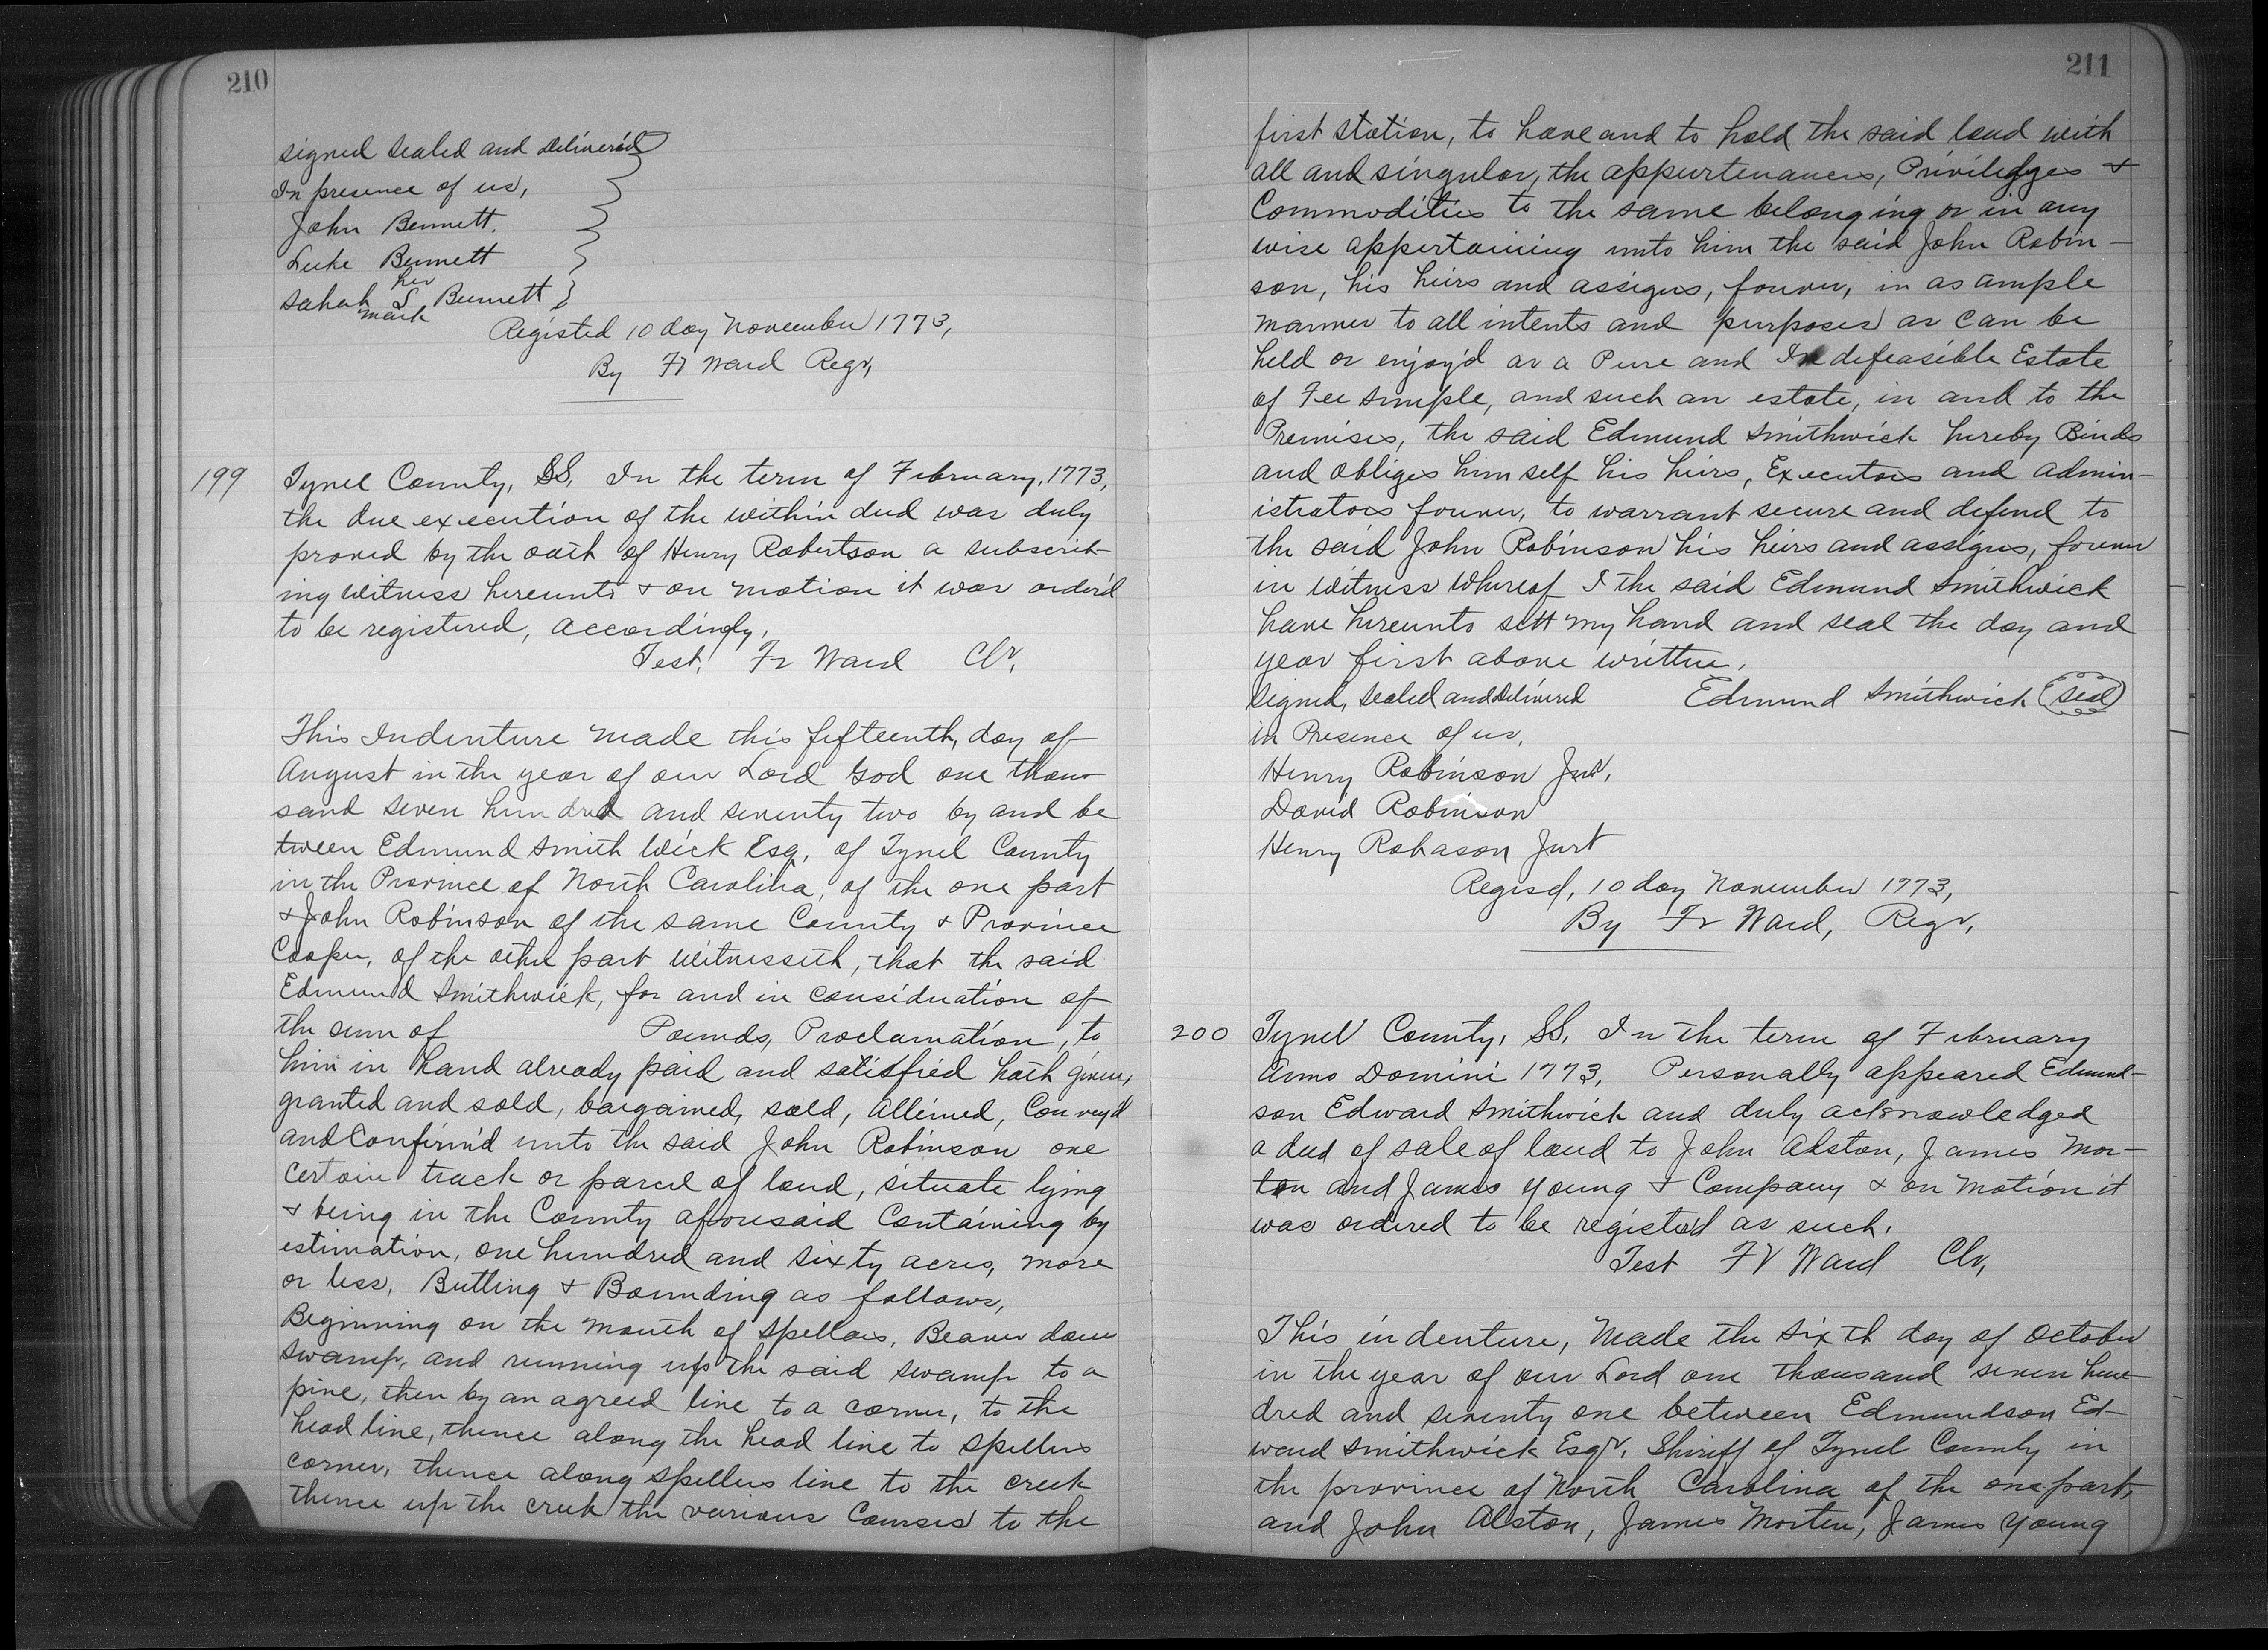 210
signed sealed and Delivered
In presence of us,
John Bennett.
Luke Bennett
her
Sahah S Bennett
mark
Registed 10 day November 1773,
By Fr Ward Regr,
199
Tyrel County, SS, In the term of February, 1773,
the due execution of the within deed was duly
proved by the oath of Henry Robertson a subscrib-
ing witness hereunto & on motion it was order'd
to be registered, accordingly,
Test, Fr Ward Clr,
This Indenture made this fifteenth, day of
August in the year of our Lord God one thou-
sand seven hundred and seventy two by and be
tween Edmund Smith Wick Esq, of Tyrel County
in the Province of North Carolina, of the one part
& John Robinson of the same County & Province
Cooper, of the other part Witnesseth, that the said
Edmund Smithwick, for and in consideration of
the sum of Pounds, Proclamation, to
him in hand already paid and satisfied hath given,
granted and sold, bargained, sold, Alleined, Convey'd
and confirm'd unto the said John Robinson one
certain track or parcel of land, situate lying
& being in the County aforesaid Containing by
estimation, one hundred and sixty acres, more
or less, Butling & Bounding as follows,
Beginning on the mouth of Spellars, Beaver dam
swamp, and running up the said swamp to a
pine, then by an agreed line to a corner, to the
head line, thence along the head line to Spellers
corner, thence along Spellers line to the creek
thence up the creek the various Courses to the
211
first station, to have and to hold the said land with
all and singular, the appurtenances, Priviledges &
Commodities to the same belonging or in any
wise appertaining unto him the said John Robin-
son, his heirs and assigns, forever, in as ample
manner to all intents and purposes as can be
held or enjoy'd as a Pure and Indefeasible Estate
of Fee simple, and such an estate, in and to the
Premises, the said Edmund Smithwick hereby Binds
and obliges himself his heirs, Executors and admin-
istrators forever, to warrant secure and defend to
the said John Robinson his heirs and assigns, forever
in witness Whereof I the said Edmund Smithwick
have hereunto sett my hand and seal the day and
year first above written.
Signed, sealed and Delivered Edmund Smithwick Seal
in Presence of us,
Henry Robinson Jur,
David Robinson
Henry Rohason Jurt
Regisd, 10 day November 1773,
By Fr Ward, Regr,
200
Tyrel County, SS, In the term of February
Anno Domini 1773, Personally appeared Edmund-
son Edward Smithwick and duly acknowledged
a deed of sale of land to John Alston, James Mor-
ton and James Young & Company & on Motion it
was ordered to be registerd as such.
Test Fr Ward Clr,
This indenture, Made the sixth day of October
in the year of our Lord one thousand seven hun-
dred and seventy one between Edmundson Ed-
ward Smithwick Esqr, Shiriff of Tyrel County in
the province of North Carolina of the one part,
and John Alston, James Morten, James Young